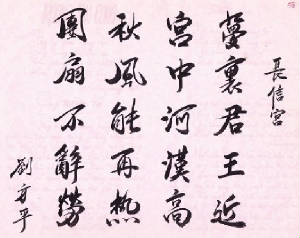 長信宮
夢裏君王近
宮中河漢高
秋風能再熱
團扇不辭勞
劉方平